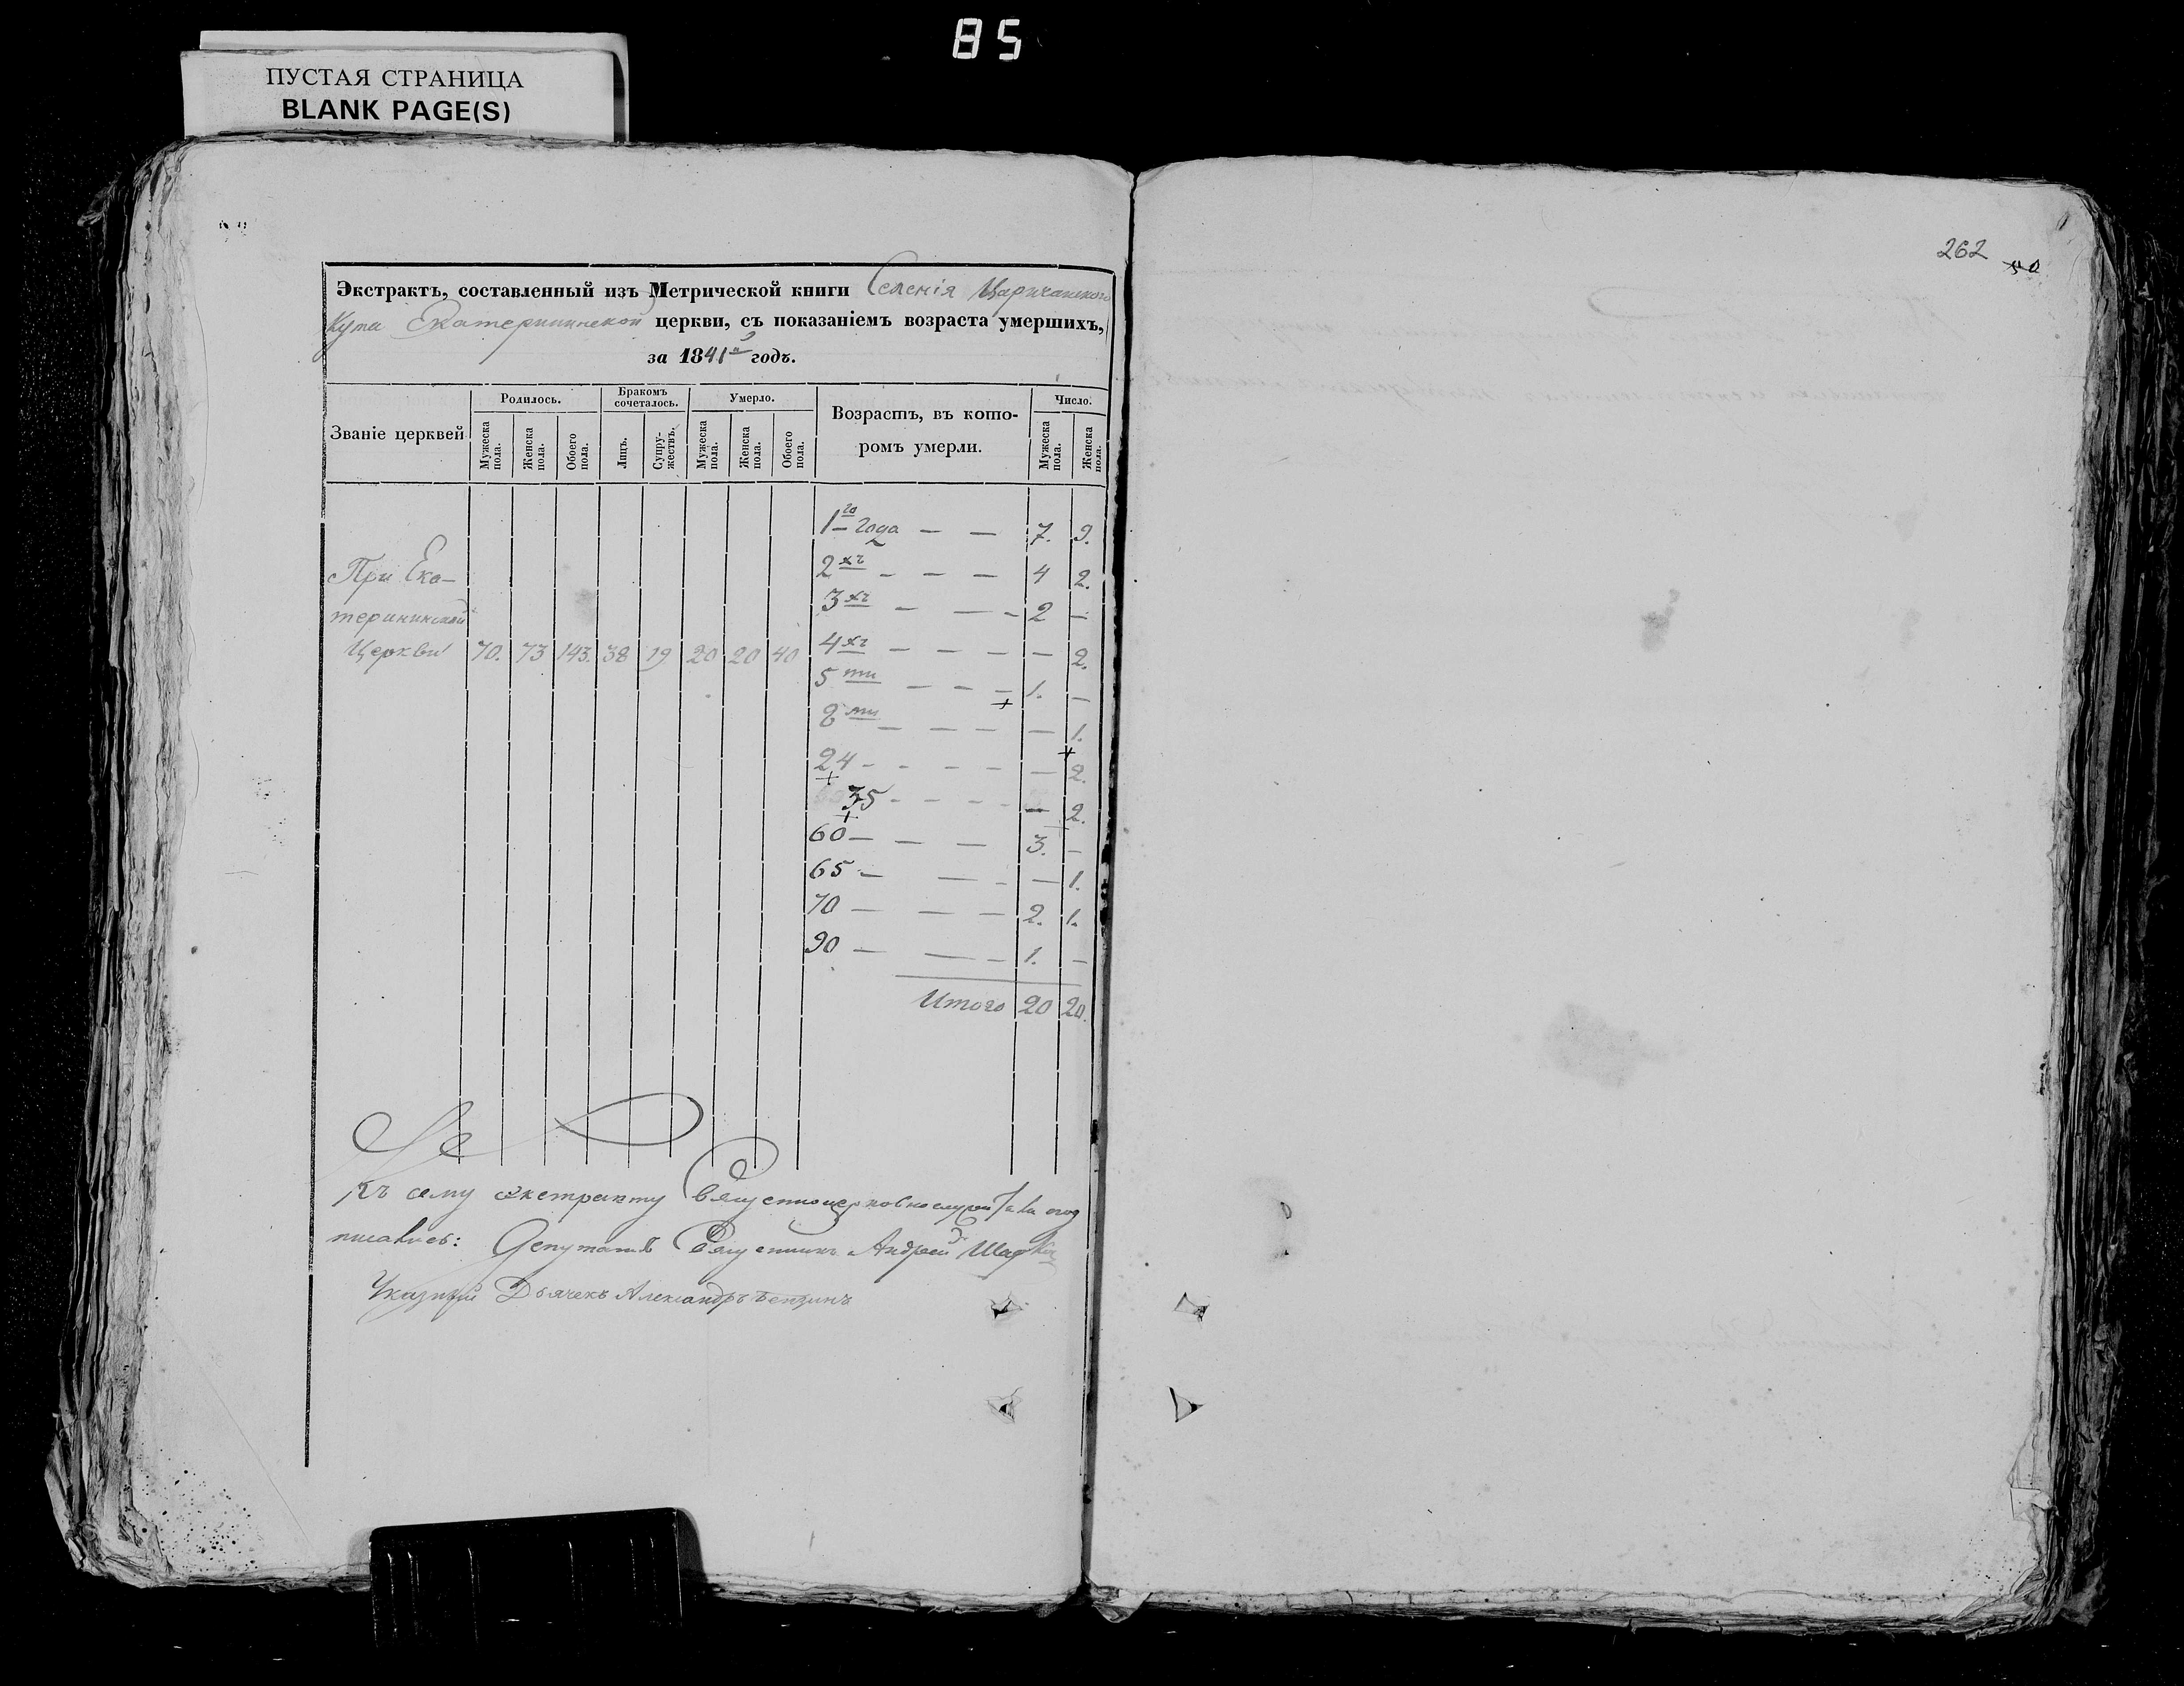 85
ПУСТАЯ СТРАНИЦА
BLANK PAGE(S)
262
Экстрактъ, составленный изъ Метрической книги Селенія Царичанского
Кута Екатерининской церкви, съ показаніемъ возраста умершихъ,
за 1841й годъ.
Званіе церквей
Родилось.
Бракомъ сочеталось.
Умерло.
Возрастъ, въ кото-
ромъ умерли.
Число.
Мужеска пола.
Женска пола.
Обоего пола.
Лицъ.
Супру-жествъ.
Мужеска пола.
Женска пола.
Обоего пола.
Мужеска пола.
Женска пола.
1го года — — 7. 9.
При Ека-
2хъ — — — 4 2.
терининской
3хъ — — — 2 —
Церкви 70. 73 143. 38 19 20 20 40
4хъ — — — — 2.
5ти — — — 1. —
8ми — — — — 1.
24 — — — — — 2.
35 — — — — — 2.
60 — — — 3. —
65 — — — — 1.
70 — — — 2. 1.
90 — — — 1. —
Итого 20 20.
Къ сему экстракту
писались: Депутатъ Священникъ Андрей
Указный Дьячекъ Александръ